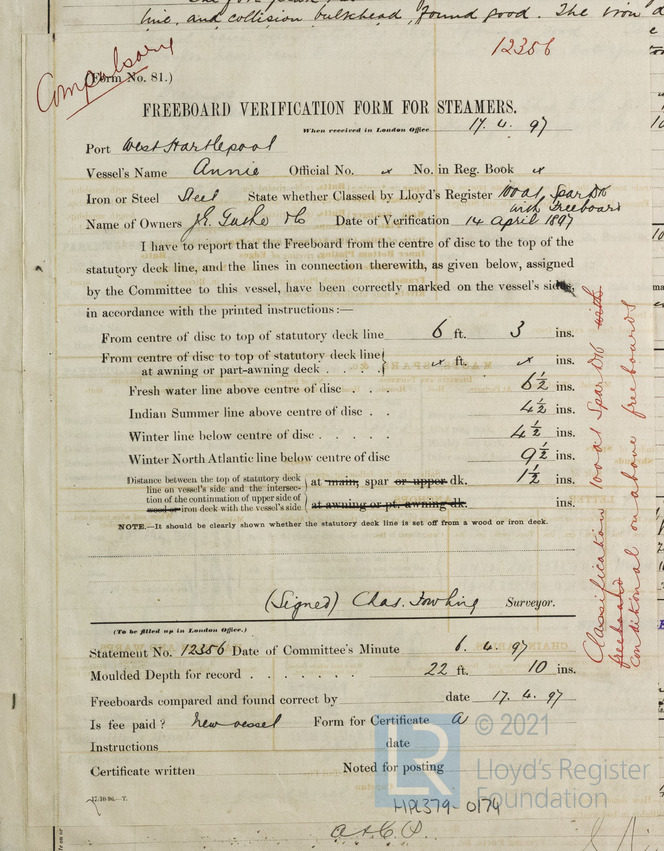 line, and collision bulkhead, found good. The iron
12356
Compulsory
(Form No. 81.)
FREEBOARD VERIFICATION FORM FOR STEAMERS.
When received in London Office 17. 4. 97
Port West Hartlepool
Vessel's Name Annie Official No. x No. in Reg. Book x
Iron or Steel Steel State whether Classed by Lloyd's Register 100A1 Spar Dk
with freeboard
Name of Owners Date of Verification 14 April 1897
I have to report that the Freeboard from the centre of disc to the top of the
statutory deck line, and the lines in connection therewith, as given below, assigned
by the Committee to this vessel, have been correctly marked on the vessel's sides,
in accordance with the printed instructions:—
From centre of disc to top of statutory deck line 6 ft. 3 ins.
From centre of disc to top of statutory deck line
at awning or part-awning deck . . . . x ft. x ins.
Fresh water line above centre of disc . . . 6½ ins.
Indian Summer line above centre of disc . . 4½ ins.
Winter line below centre of disc . . . . . 4½ ins.
Winter North Atlantic line below centre of disc 9½ ins.
Distance between the top of statutory deck
line on vessel's side and the intersec-
tion of the continuation of upper side of
wood or iron deck with the vessel's side
at main, spar or upper dk. 1½ ins.
at awning or pt. awning dk. ins.
NOTE.—It should be clearly shown whether the statutory deck line is set off from a wood or iron deck.
(Signed) Chas. Surveyor.
(To be filled up in London Office.)
Statement No. 12356 Date of Committee's Minute 6. 4. 97
Moulded Depth for record . . . . . . . 22 ft. 10 ins.
Freeboards compared and found correct by date 17. 4. 97
Is fee paid? New vessel Form for Certificate A
Instructions date
Certificate written Noted for posting
17-10-96.—T.
Classification 100A1 Spar Dk with
freeboard
conditional on above freeboards
LR
© 2021
Lloyd's Register
Foundation
HPL379-0174